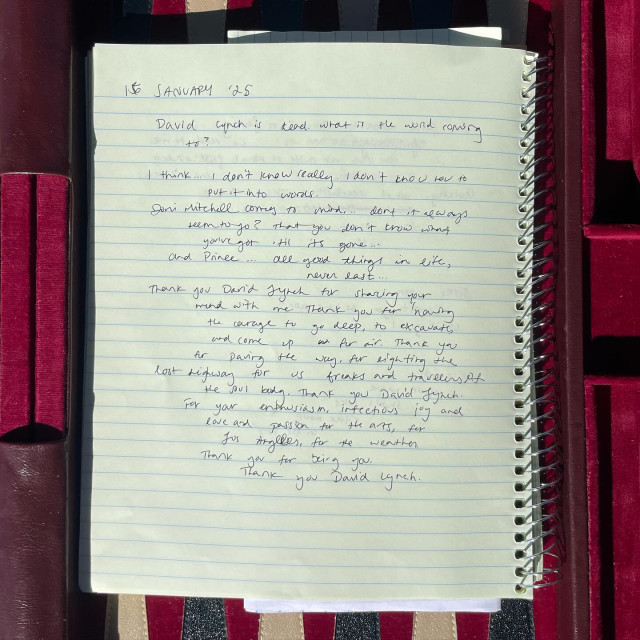 15 JANUARY '25
David Lynch is dead. what is the world coming
to?
I think... I don't know really. I don't know how to
put it into words.
Joni Mitchell comes to mind... dont it always
seem to go? That you don't know what
you've got 'til its gone...
and Prince... all good things in life,
never last...
Thank you David Lynch for sharing your
mind with me. Thank you for having
the courage to go deep, to excavate
and come up for air. Thank you
for paving the way, for lighting the
lost highway for us freaks and travelers of
the soul body. Thank you David Lynch.
For your enthusiasm, infectious joy and
love and passion for the arts, for
Los Angeles, for the weather.
Thank you for being you.
Thank you David Lynch.